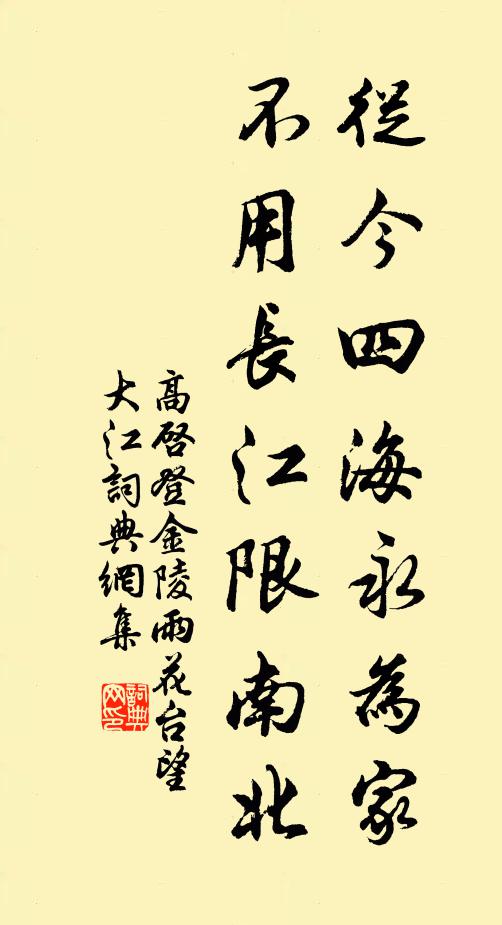 從今四海永為家
不用長江限南北
高啓登金陵雨花台望
大江詞典網集
詞典
网印